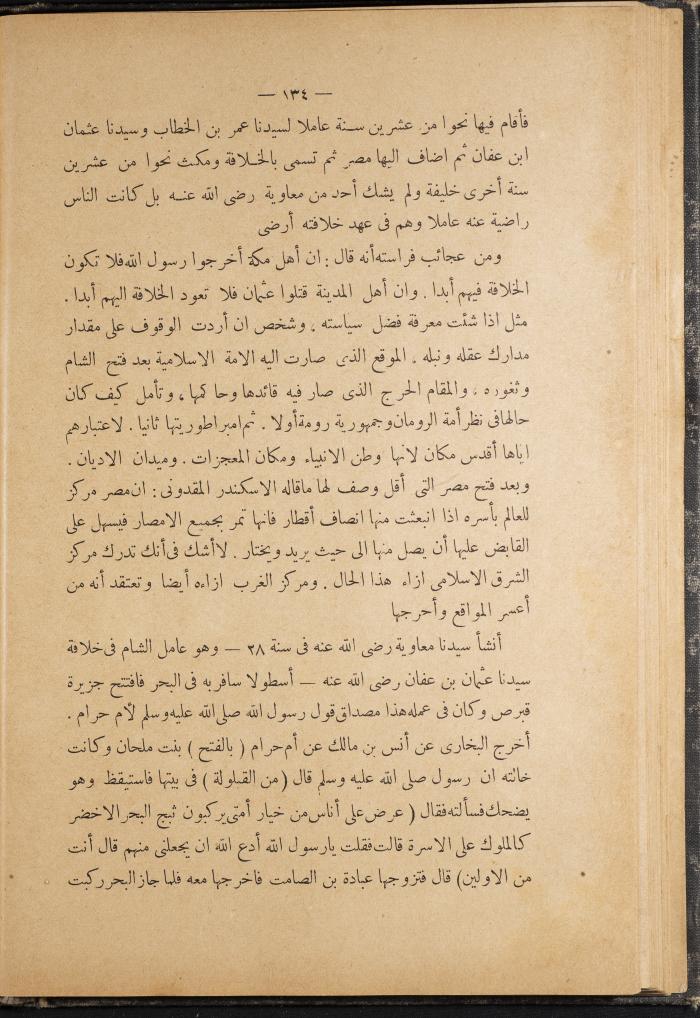 — ١٣٤ —
فأقام فيها نحوا من عشرين سنة عاملا لسيدنا عمر بن الخطاب وسيدنا عثمان
ابن عفان ثم اضاف اليها مصر ثم تسمى بالخلافة ومكث نحوا من عشرين
سنة أخرى خليفة ولم يشك أحد من معاوية رضى الله عنه بل كانت الناس
راضية عنه عاملا وهم فى عهد خلافته أرضى
ومن عجائب فراسته أنه قال : ان أهل مكة أخرجوا رسول الله فلا تكون
الخلافة فيهم أبدا . وان أهل المدينة قتلوا عثمان فلا تعود الخلافة اليهم أبدا .
مثل اذا شئت معرفة فضل سياسته ، وشخص ان أردت الوقوف على مقدار
مدارك عقله ونبله ، الموقع الذى صارت اليه الامة الاسلامية بعد فتح الشام
وثغوره ، والمقام الحرج الذى صار فيه قائدها وحاكمها ، وتأمل كيف كان
حالها فى نظر أمة الرومان وجمهورية رومة أولا . ثم امبراطوريتها ثانيا . لاعتبارهم
اياها أقدس مكان لانها وطن الانبياء ومكان المعجزات . وميدان الاديان .
وبعد فتح مصر التى أقل وصف لها ماقاله الاسكندر المقدونى : ان مصر مركز
للعالم بأسره اذا انبعثت منها انصاف أقطار فانها تمر بجميع الامصار فيسهل على
القابض عليها أن يصل منها الى حيث يريد ويختار . لاأشك فى أنك تدرك مركز
الشرق الاسلامى ازاء هذا الحال . ومركز الغرب ازاءه أيضا وتعتقد أنه من
أعسر المواقع وأحرجها
أنشأ سيدنا معاوية رضى الله عنه فى سنة ٢٨ — وهو عامل الشام فى خلافة
سيدنا عثمان بن عفان رضى الله عنه — أسطولا سافر به فى البحر فافتتح جزيرة
قبرص وكان فى عمله هذا مصداق قول رسول الله صلى الله عليه وسلم لأم حرام .
أخرج البخارى عن أنس بن مالك عن أم حرام ( بالفتح ) بنت ملحان وكانت
خالته ان رسول صلى الله عليه وسلم قال ( من القيلولة ) فى بيتها فاستيقظ وهو
يضحك فسألته فقال ( عرض على أناس من خيار أمتى يركبون ثبج البحر الاخضر
كالملوك على الاسرة قالت فقلت يارسول الله أدع الله ان يجعلنى منهم قال أنت
من الاولين) قال فتزوجها عبادة بن الصامت فاخرجها معه فلما جاز البحر ركبت